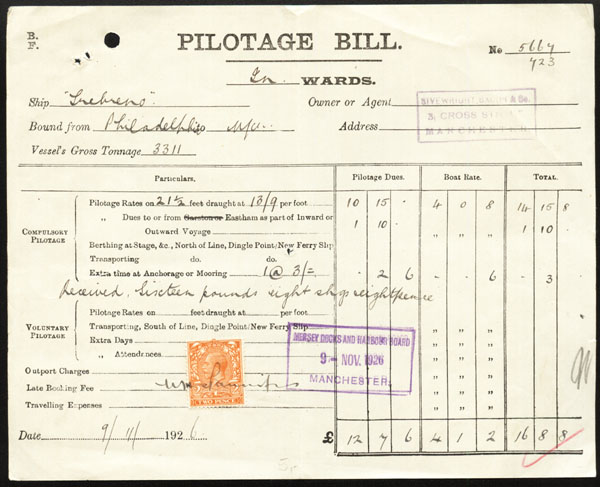 B.
F.
PILOTAGE BILL.
No 5667
723
In WARDS.
Ship "Srebreno"
Owner or Agent
& Co.
3, CROSS STREET
MANCHESTER
Bound from Philadelphia to M/c
Address
Vessel's Gross Tonnage 3311
Particulars. Pilotage Dues. Boat Rate. TOTAL.
COMPULSORY PILOTAGE
Pilotage Rates on 21½ feet draught at 13/9 per foot 10 15 . 4 0 8 14 15 8
„ Dues to or from Garston or Eastham as part of Inward or
Outward Voyage 1 10 . „ „ 1 10
Berthing at Stage, &c., North of Line, Dingle Point/New Ferry Slip „ „
Transporting do. do. „ „
Extra time at Anchorage or Mooring 1 @ 3/= . 2 6 . . 6 . 3
Received, Sixteen pounds eight shgs eightpence
VOLUNTARY PILOTAGE
Pilotage Rates on feet draught at per foot
Transporting, South of Line, Dingle Point/New Ferry Slip „ „
Extra Days „ „
„ Attendances „ „
MERSEY DOCKS AND HARBOUR BOARD
9 - NOV. 1926
MANCHESTER.
Outport Charges „ „
Late Booking Fee „ „
Travelling Expenses „ „
TWO PENCE
Date 9/11/ 1926 £ 12 7 6 4 1 2 16 8 8